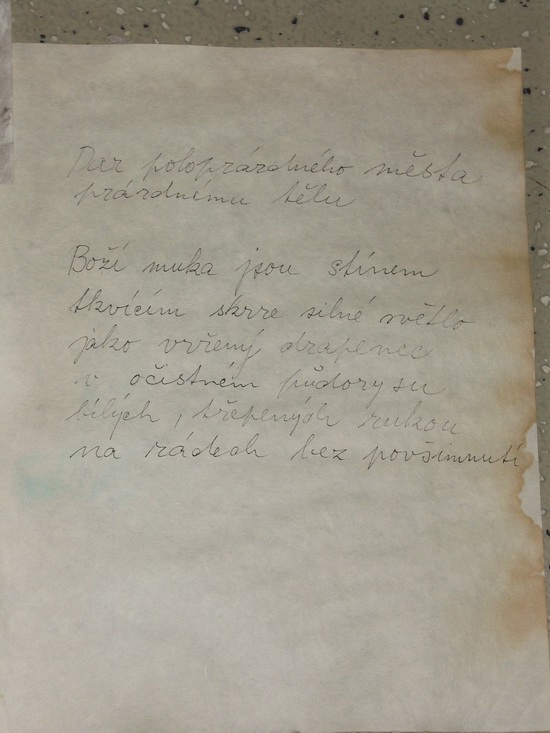 Dar poloprázdného města
prázdnému tělu
Boží muka jsou stínem
tkvícím skrze silné světlo
jako vržený drapenec
v očistném půdorysu
bílých, třepených rukou
na zádech bez povšimnutí